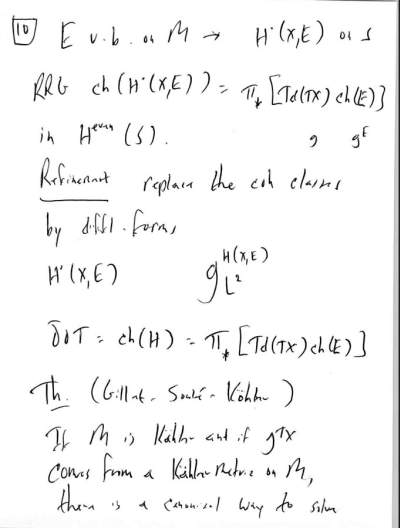 10 E v.b. on M → H·(X,E) on S
RRG ch(H·(X,E)) = π_*[Td(TX) ch(E)]
in H^even (S). g g^E
Refinement replace the coh classes
by diffl. forms
H·(X,E) g_{L²}^{H(X,E)}
∂̄∂T = ch(H) - π_*[Td(TX) ch(E)]
Th. (Gillet-Soulé-Köhler)
If M is Kähler and if g^TX
comes from a Kähler metric on M,
there is a canonical way to solve